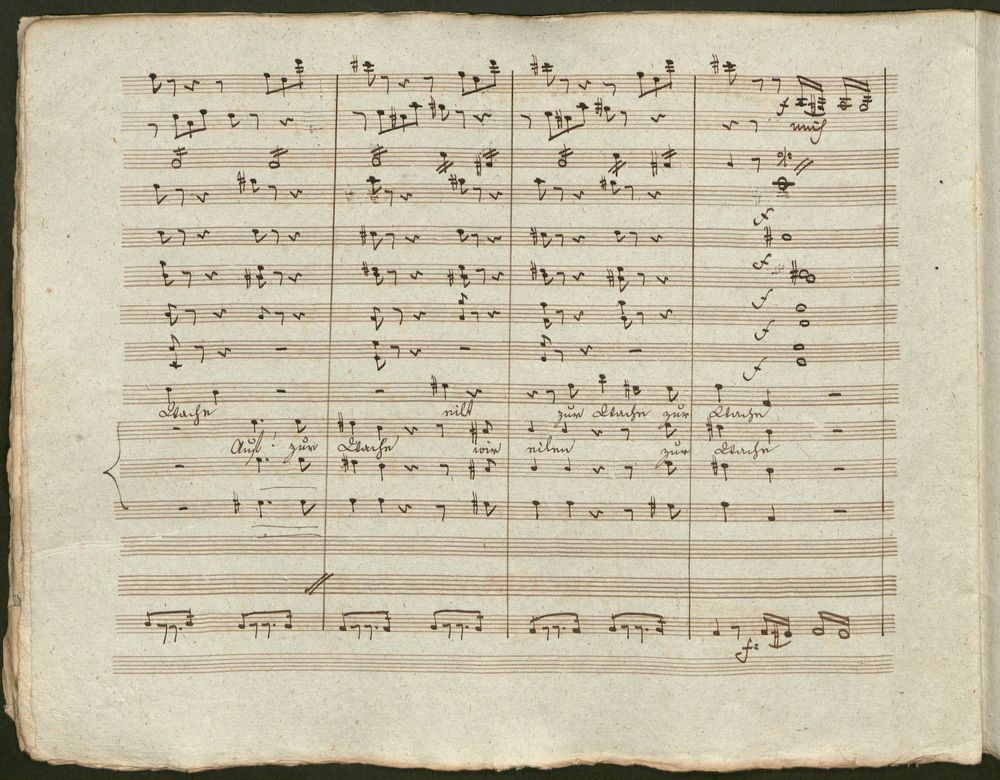 f
unis
f
f
f
f
f
Wache eilt zur Wache zur Wache
Auf! zur Wache wir eilen zur Wache
f: